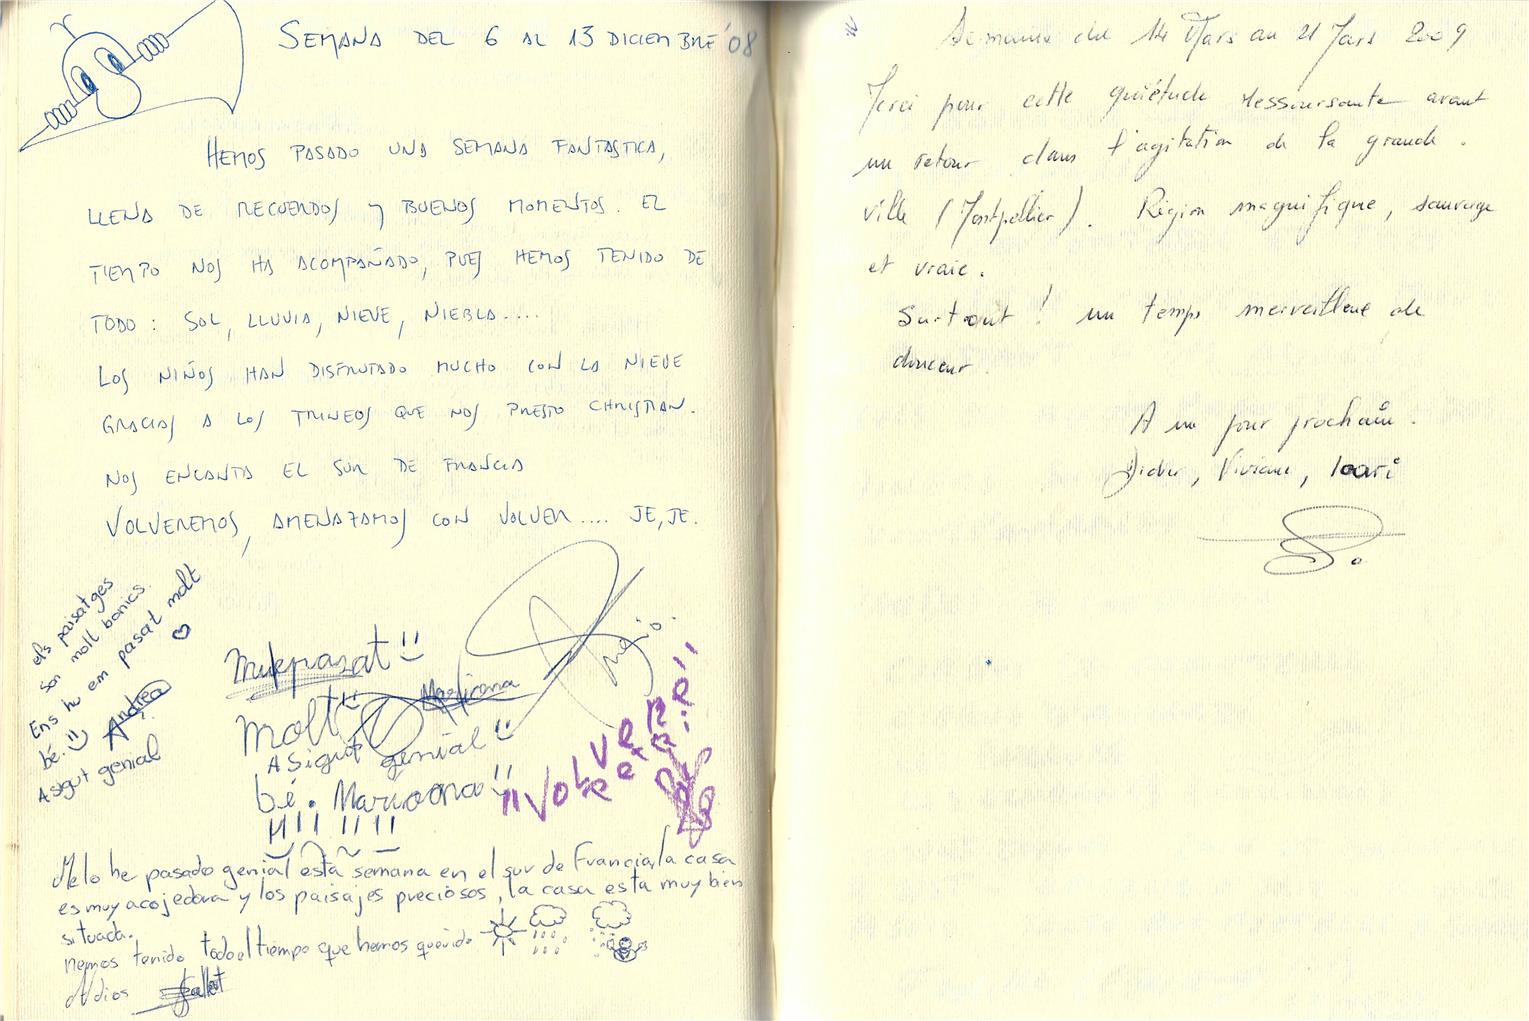 SEMANA DEL 6 AL 13 DICIEMBRE '08
HEMOS PASADO UNA SEMANA FANTASTICA,
LLENA DE RECUERDOS Y BUENOS MOMENTOS. EL
TIEMPO NOS HA ACOMPAÑADO, PUES HEMOS TENIDO DE
TODO: SOL, LLUVIA, NIEVE, NIEBLA....
LOS NIÑOS HAN DISFRUTADO MUCHO CON LA NIEVE
GRACIAS A LOS TRINEOS QUE NOS PRESTO CHRISTIAN.
NOS ENCANTA EL SUR DE FRANCIA
VOLVEREMOS, AMENAZAMOS CON VOLVER.... JE, JE.
els paisatges
son molt bonics.
Ens hu em pasat molt
bé. Andrea
A sigut genial
Molt
A Sigut genial
bé. Mariona
"VOLVERÉ"
Me lo he pasado genial esta semana en el sur de Francia, la casa
es muy acojedora y los paisajes preciosos, la casa esta muy bien
situada.
hemos tenido todo el tiempo que hemos querido
Adios
Semaine du 14 Mars au 21 Mars 2009
Merci pour cette quiétude ressoursante avant
un retour dans l'agitation de la grande
ville (Montpellier). Région magnifique, sauvage
et vraie.
Surtout ! un temps merveilleux de
douceur.
A un jour prochain.
Didier, Viviane,